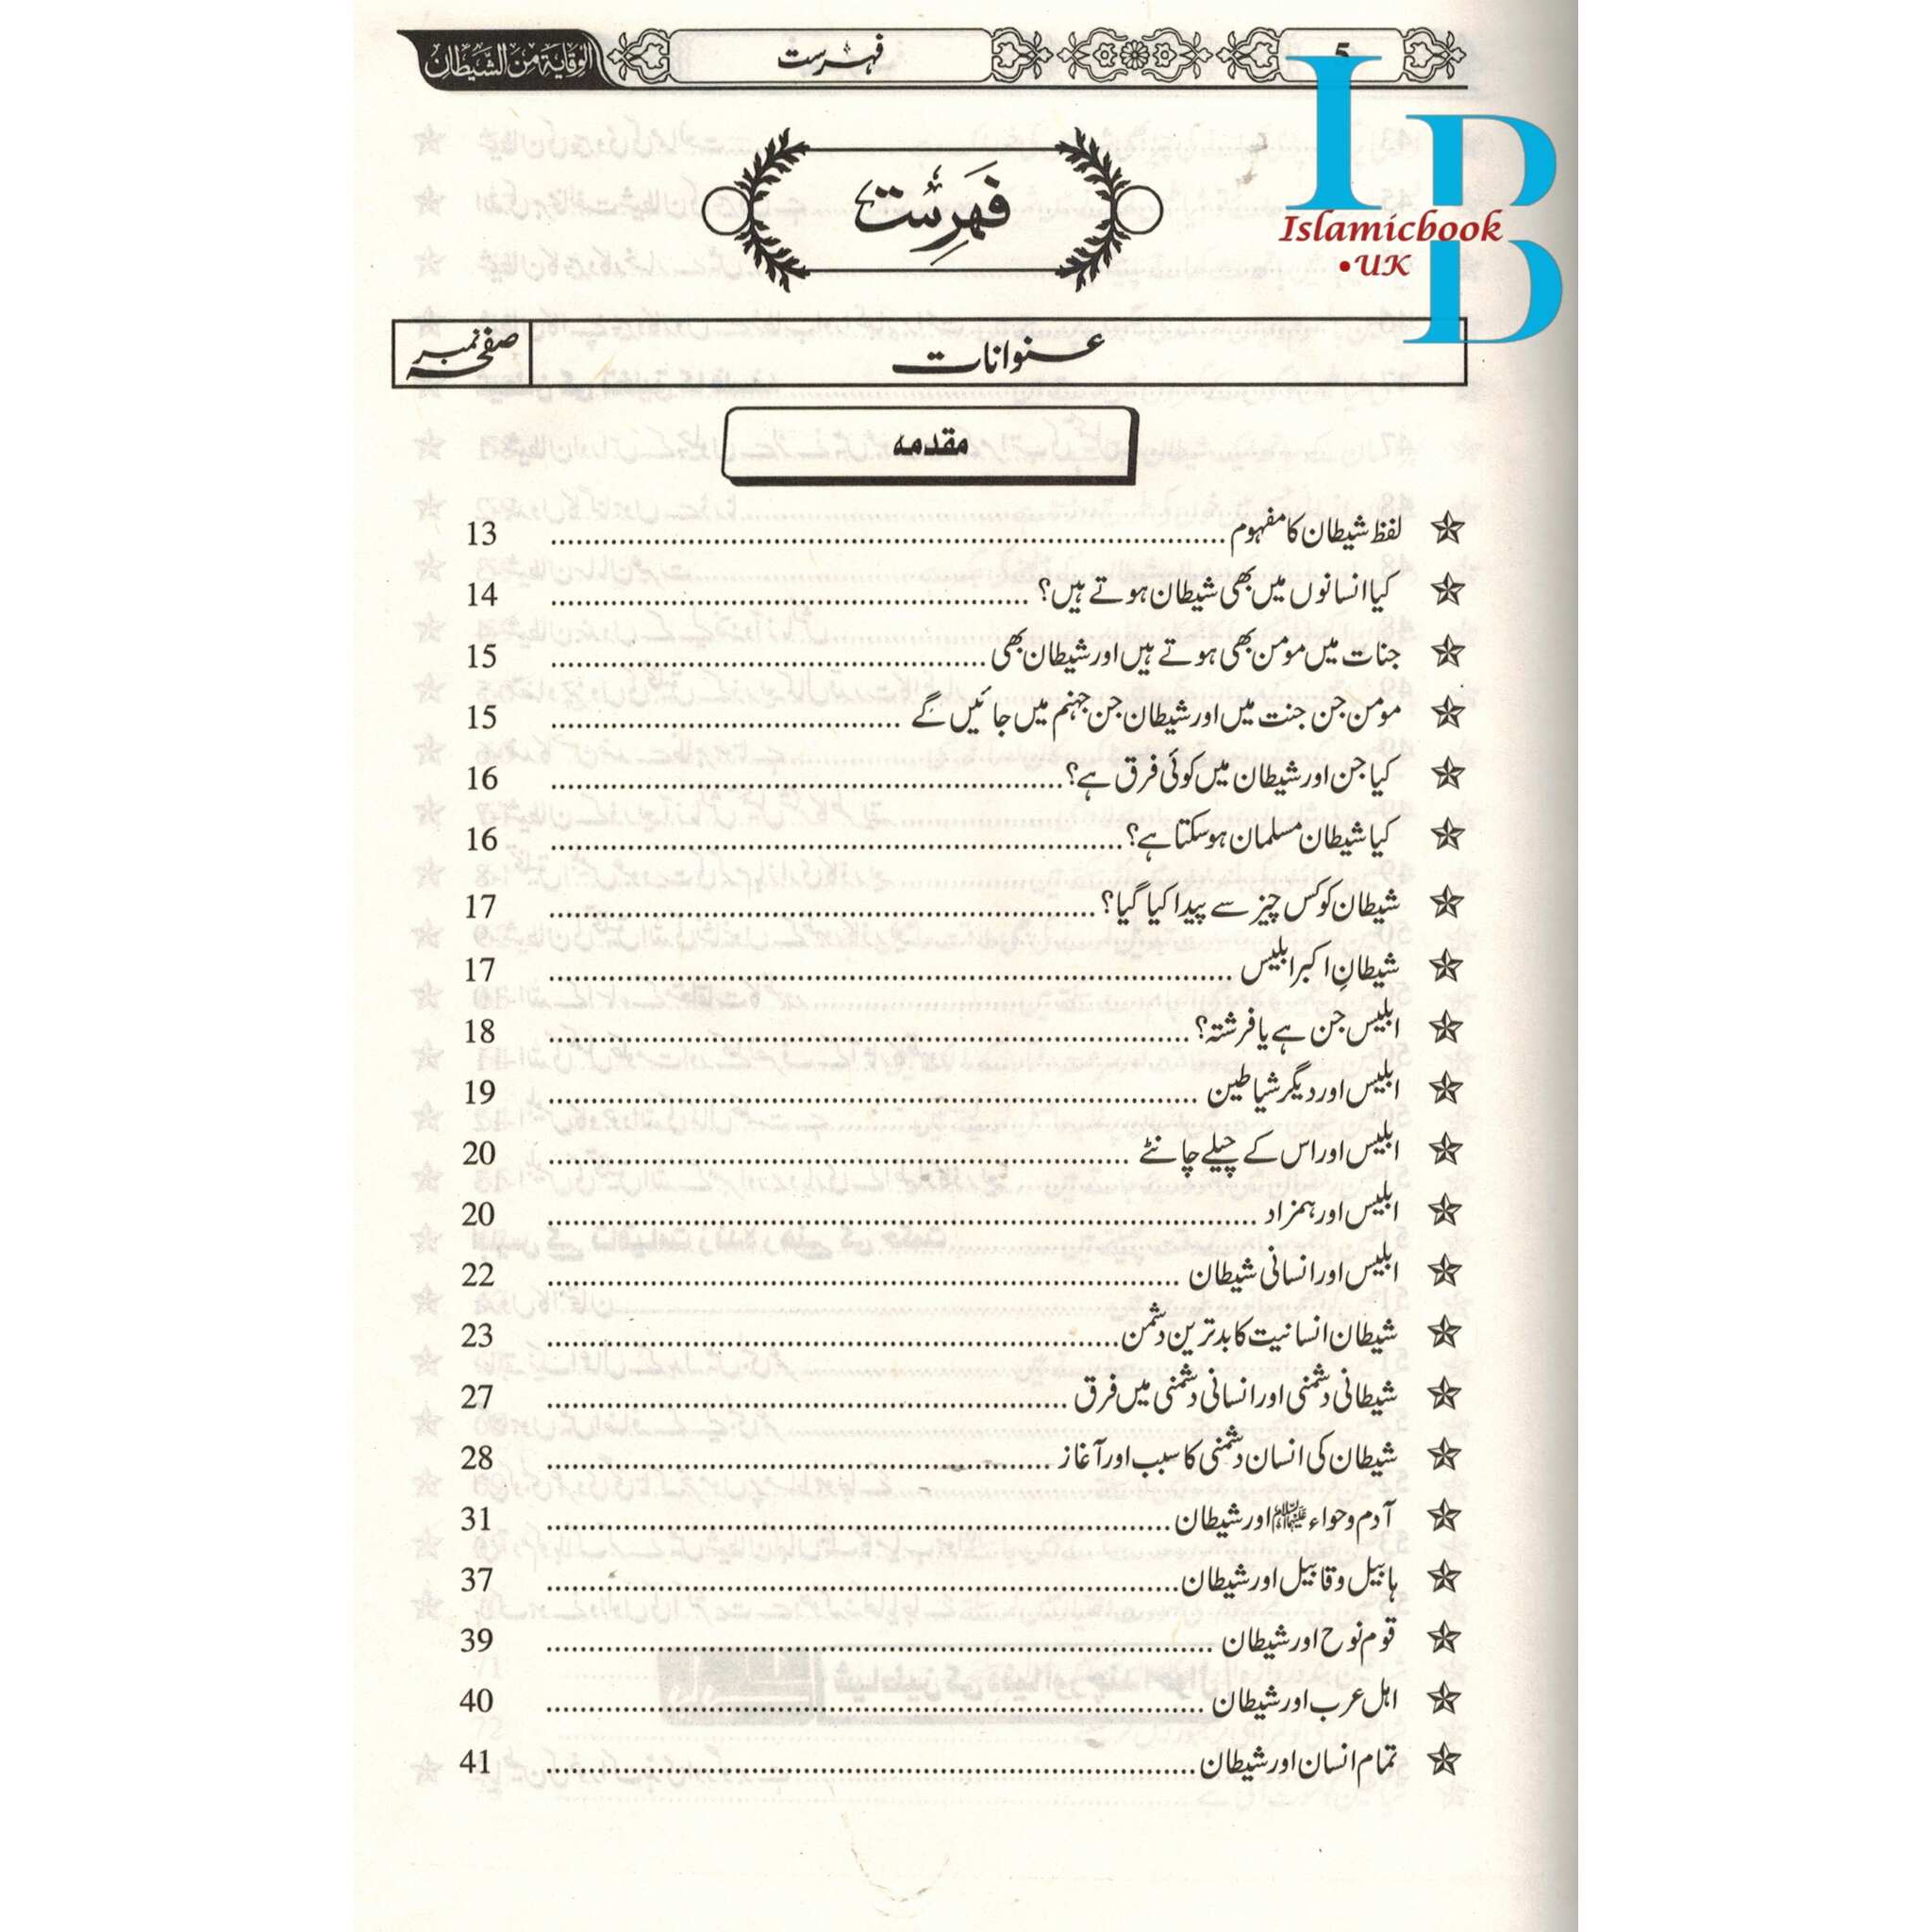 الوقایة من الشیطان
فہرست
5
IB
Islamicbook
.UK
فہرست
عنوانات
صفحہ نمبر
مقدمہ
لفظ شیطان کا مفہوم 13
کیا انسانوں میں بھی شیطان ہوتے ہیں؟ 14
جنات میں مومن بھی ہوتے ہیں اور شیطان بھی 15
مومن جن جنت میں اور شیطان جن جہنم میں جائیں گے 15
کیا جن اور شیطان میں کوئی فرق ہے؟ 16
کیا شیطان مسلمان ہوسکتا ہے؟ 16
شیطان کو کس چیز سے پیدا کیا گیا؟ 17
شیطانِ اکبر ابلیس 17
ابلیس جن ہے یا فرشتہ؟ 18
ابلیس اور دیگر شیاطین 19
ابلیس اور اس کے چیلے چانٹے 20
ابلیس اور ہمزاد 20
ابلیس اور انسانی شیطان 22
شیطان انسانیت کا بدترین دشمن 23
شیطانی دشمنی اور انسانی دشمنی میں فرق 27
شیطان کی انسان دشمنی کا سبب اور آغاز 28
آدم و حواء علیہما السلام اور شیطان 31
ہابیل و قابیل اور شیطان 37
قوم نوح اور شیطان 39
اہل عرب اور شیطان 40
تمام انسان اور شیطان 41